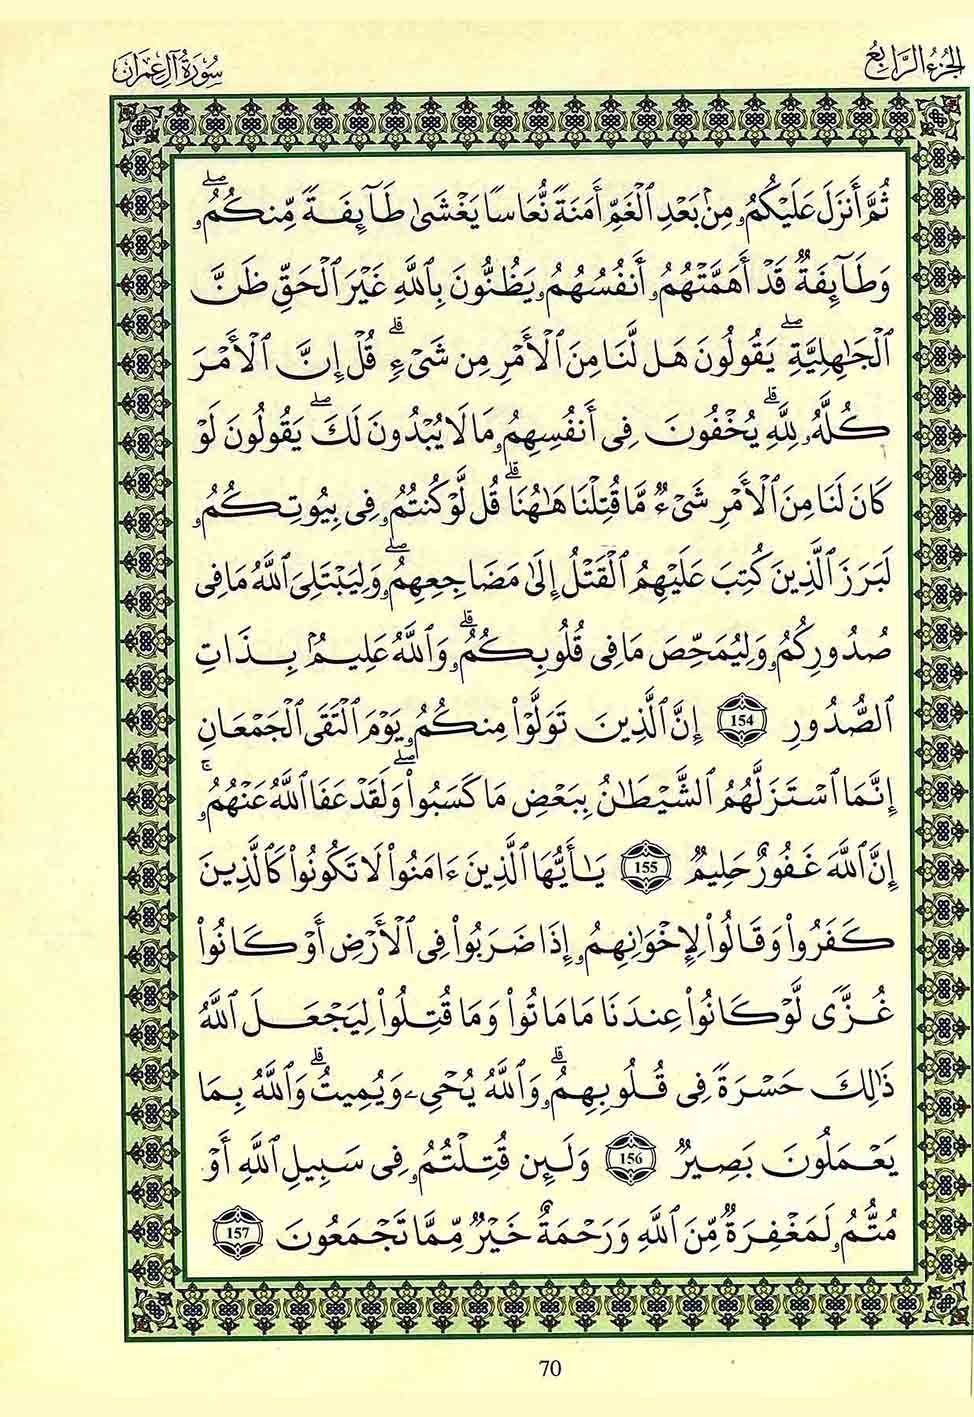 الجُزْءُ الرَّابِعُ
سُورَةُ آلِ عِمْرَان
ثُمَّ أَنزَلَ عَلَيْكُمُۥ مِنۢ بَعْدِ ٱلْغَمِّ أَمَنَةً نُّعَاسًا يَغْشَىٰ طَآئِفَةً مِّنكُمُۥۖ
وَطَآئِفَةٌ قَدْ أَهَمَّتْهُمُۥ أَنفُسُهُمُۥ يَظُنُّونَ بِٱللَّهِ غَيْرَ ٱلْحَقِّ ظَنَّ
ٱلْجَٰهِلِيَّةِۖ يَقُولُونَ هَل لَّنَا مِنَ ٱلْأَمْرِ مِن شَىْءٍۗ قُلْ إِنَّ ٱلْأَمْرَ
كُلَّهُۥ لِلَّهِۗ يُخْفُونَ فِى أَنفُسِهِمُۥ مَا لَا يُبْدُونَ لَكَۖ يَقُولُونَ لَوْ
كَانَ لَنَا مِنَ ٱلْأَمْرِ شَىْءٌ مَّا قُتِلْنَا هَٰهُنَاۗ قُل لَّوْ كُنتُمُۥ فِى بِيُوتِكُمُۥ
لَبَرَزَ ٱلَّذِينَ كُتِبَ عَلَيْهِمُ ٱلْقَتْلُ إِلَىٰ مَضَاجِعِهِمُۥۖ وَلِيَبْتَلِىَ ٱللَّهُ مَا فِى
صُدُورِكُمُۥ وَلِيُمَحِّصَ مَا فِى قُلُوبِكُمُۥۗ وَٱللَّهُ عَلِيمٌۢ بِذَاتِ
ٱلصُّدُورِ 154 إِنَّ ٱلَّذِينَ تَوَلَّوْا۟ مِنكُمُۥ يَوْمَ ٱلْتَقَى ٱلْجَمْعَانِ
إِنَّمَا ٱسْتَزَلَّهُمُ ٱلشَّيْطَٰنُ بِبَعْضِ مَا كَسَبُوا۟ۖ وَلَقَدْ عَفَا ٱللَّهُ عَنْهُمُۥۚ
إِنَّ ٱللَّهَ غَفُورٌ حَلِيمٌ 155 يَٰأَيُّهَا ٱلَّذِينَ ءَامَنُوا۟ لَا تَكُونُوا۟ كَٱلَّذِينَ
كَفَرُوا۟ وَقَالُوا۟ لِإِخْوَٰنِهِمُۥ إِذَا ضَرَبُوا۟ فِى ٱلْأَرْضِ أَوْ كَانُوا۟
غُزًّى لَّوْ كَانُوا۟ عِندَنَا مَا مَاتُوا۟ وَمَا قُتِلُوا۟ لِيَجْعَلَ ٱللَّهُ
ذَٰلِكَ حَسْرَةً فِى قُلُوبِهِمُۥۗ وَٱللَّهُ يُحْىِۦ وَيُمِيتُۗ وَٱللَّهُ بِمَا
يَعْمَلُونَ بَصِيرٌ 156 وَلَئِن قُتِلْتُمُۥ فِى سَبِيلِ ٱللَّهِ أَوْ
مُتُّمُۥ لَمَغْفِرَةٌ مِّنَ ٱللَّهِ وَرَحْمَةٌ خَيْرٌ مِّمَّا تَجْمَعُونَ 157
70